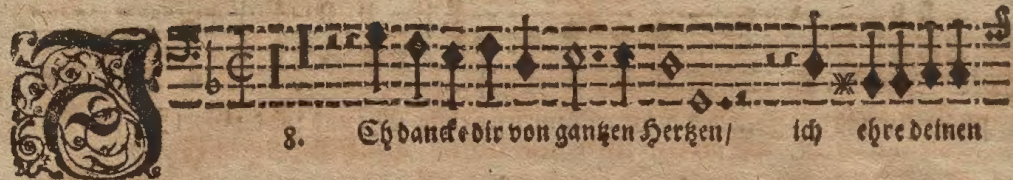 J 8. Ch dancke dir von gantzen Hertzen/ ich ehre deinen